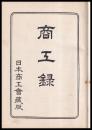 商工録
日本商工會藏版